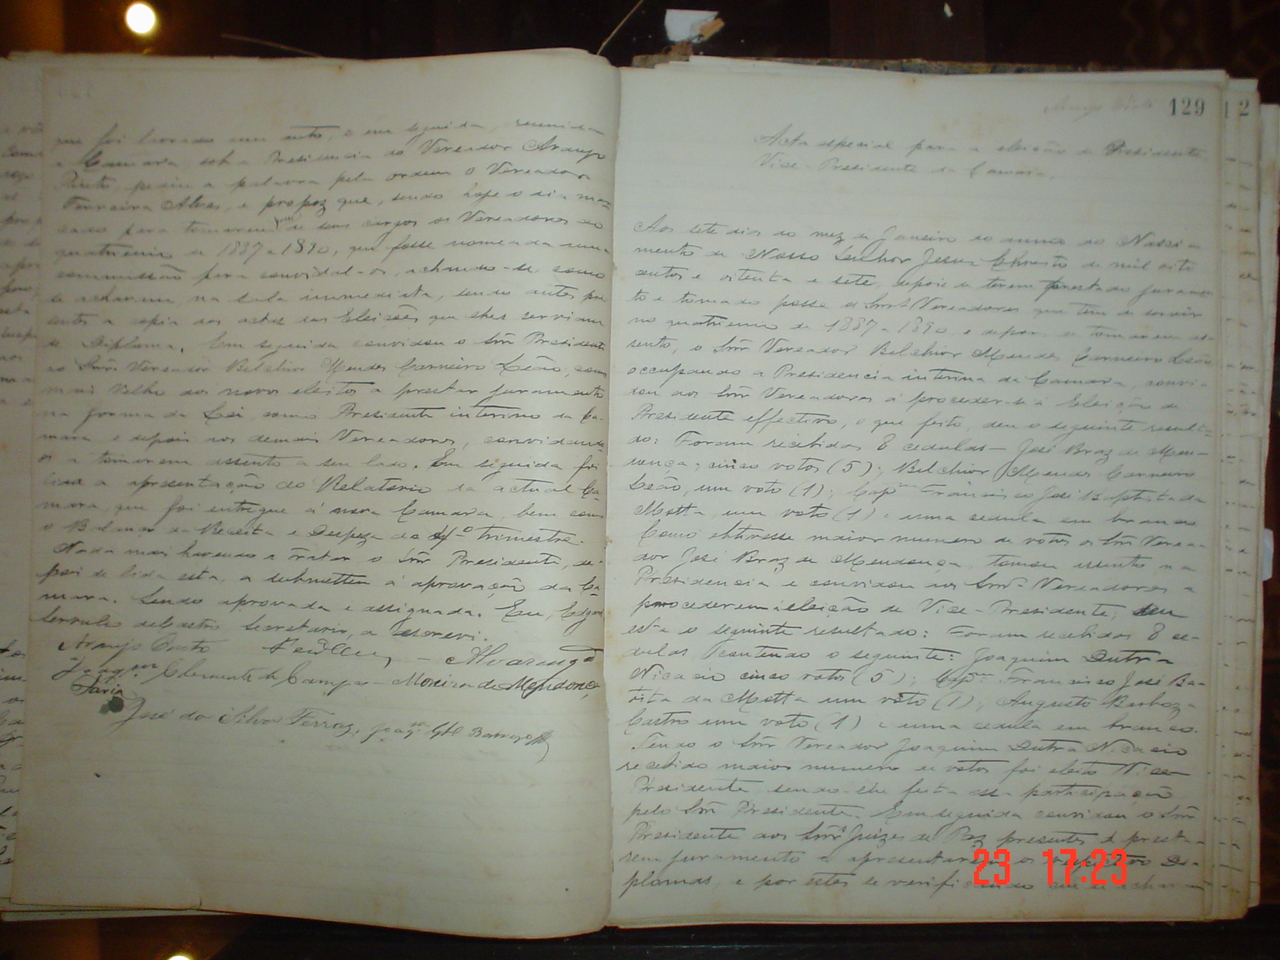 que foi lavrado um auto, e em seguida, reunida
a Camara, sob a Presidencia do Vereador Araujo
Pinto, pediu a palavra pela ordem o Vereador
Ferreira Alves, e propoz que, sendo hoje o dia mar
cado para tomarem posse de seus cargos os Vereadores do
quatrienio de 1887 a 1890, que fosse nomeada uma
commissão para convidal-os, achando-se como
se achavam, na sala immediata, sendo antes pre
sente a copia das actas das Eleições que lhes serviam
de Diploma. Em seguida convidou o Snr Presidente
ao Snr Vereador Belchior Mendes Carneiro Leão, como
mais velho dos novos eleitos a prestar juramento
na forma da Lei como Presidente interino da Ca-
mara e depois aos demais Vereadores, convidando
os a tomarem assento a seu lado. Em seguida foi
lida a apresentação do Relatorio da actual Ca
mara, que foi entregue á nova Camara, bem como
o Balanço da Receita e Despeza do 4º trimestre.
Nada mais havendo a tratar o Snr Presidente, de-
pois de lida esta, a submetteu á aprovação da Ca
mara. Sendo aprovada e assignada. Eu,
de Castro Secretario, a escrevi.
Araujo Pinto Alvarenga
Joaqm Clemente de Campos Moreira de Mendonça
Faria
José da Silva Ferraz, Joaqm
129
2
Acta especial para a eleição de Presidente
Vice-Presidente da Camara.
Aos sete dias do mez de Janeiro do anno do Nasci-
mento de Nosso Senhor Jesus Christo de mil oito
centos e oitenta e sete, depois de terem prestado juramen
to e tomado posse os Snrs Vereadores que tem de servir
no quatrienio de 1887 a 1890, e depois de tomarem as-
sento, o Snr Vereador Belchior Mendes Carneiro Leão
occupando a Presidencia interina da Camara, convi-
dou aos Snrs Vereadores á proceder-se á Eleição de
Presidente effectivo, o que feito, deu o seguinte resulta-
do: Foram recebidas 8 cedulas — José Braz de Men-
donça; cinco votos (5); Belchior Mendes Carneiro
Leão, um voto (1); Capm Francisco José Baptista da
Motta um voto (1) e uma cedula em branco
Como obtivesse maior numero de votos o Snr Verea-
dor José Braz de Mendonça, tomou assento na
Presidencia e convidou aos Snrs Vereadores a
procederem á eleição de Vice-Presidente, deu
esta o seguinte resultado: Foram recebidas 8 ce-
dulas contendo o seguinte: Joaquim Dutra
Nicacio cinco votos (5); Capm Francisco José Ba-
tista da Motta um voto (1); Augusto Barboza
Castro um voto (1) e uma cedula em branco.
Tendo o Snr Vereador Joaquim Dutra Nicacio
recebido maior numero de votos foi eleito Vice-
Presidente sendo-lhe feita essa participação
pelo Snr Presidente. Em seguida convidou o Snr
Presidente aos Snrs Juizes de Paz presentes á presta-
rem juramento e apresentarem o respectivo Di-
plomas, e por estes se verificando que se achavam
23 17:23